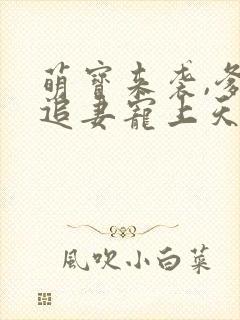 萌寶來袭,爹
追妻寵上天
風吹小白菜